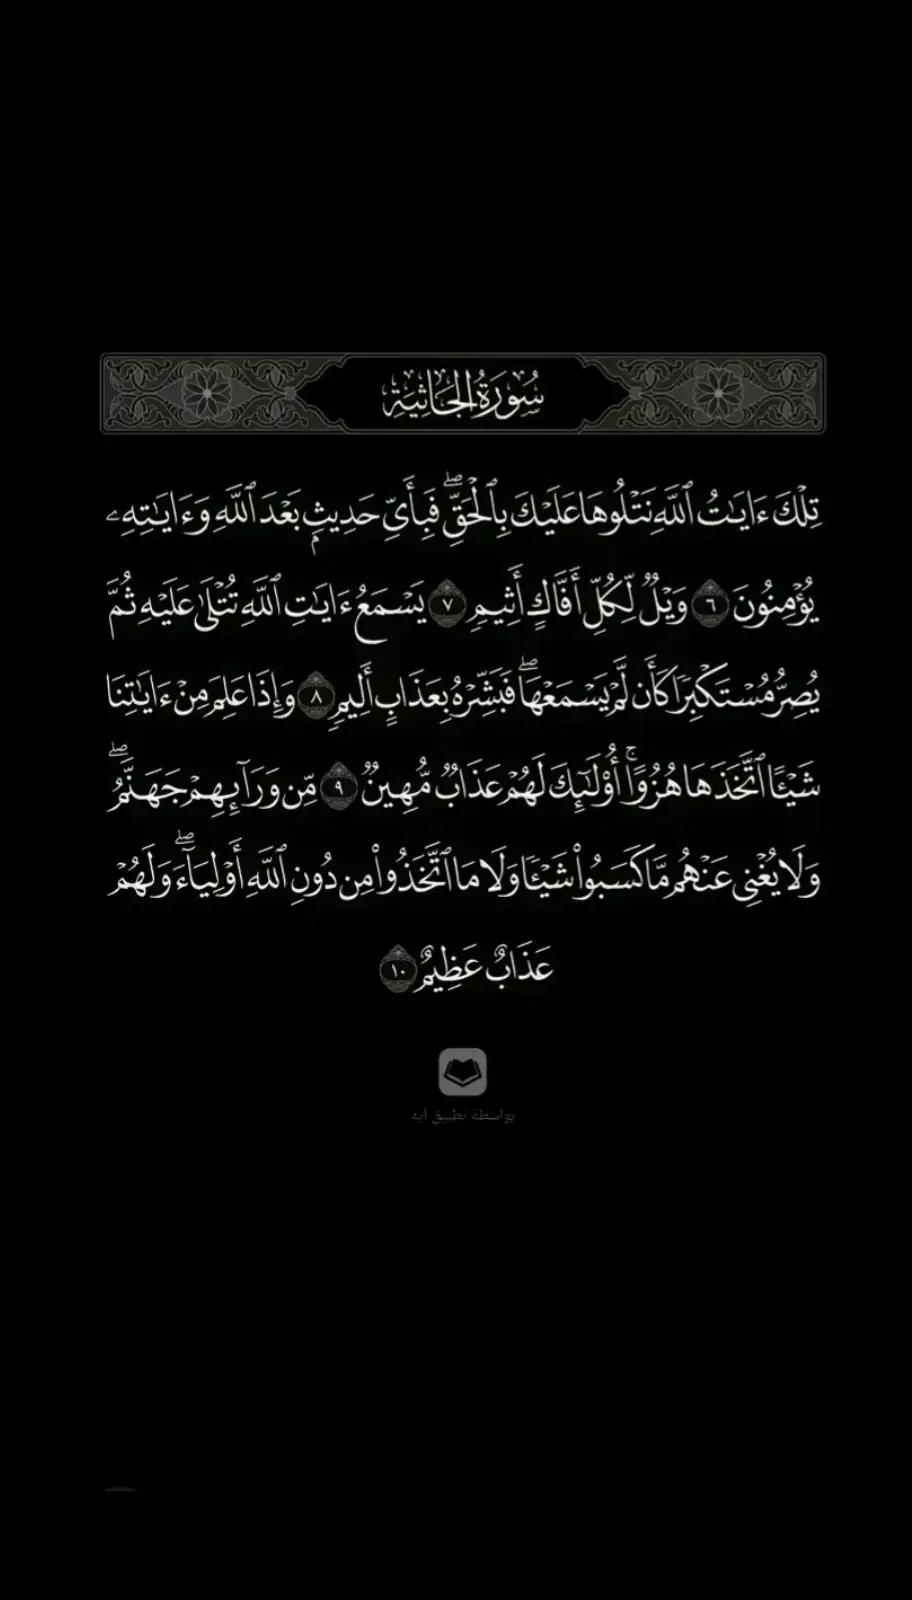 سُورَةُ الجَاثِيَةِ
تِلْكَ ءَايَـٰتُ ٱللَّهِ نَتْلُوهَا عَلَيْكَ بِٱلْحَقِّ ۖ فَبِأَىِّ حَدِيثٍۭ بَعْدَ ٱللَّهِ وَءَايَـٰتِهِۦ
يُؤْمِنُونَ ٦ وَيْلٌ لِّكُلِّ أَفَّاكٍ أَثِيمٍ ٧ يَسْمَعُ ءَايَـٰتِ ٱللَّهِ تُتْلَىٰ عَلَيْهِ ثُمَّ
يُصِرُّ مُسْتَكْبِرًا كَأَن لَّمْ يَسْمَعْهَا ۖ فَبَشِّرْهُ بِعَذَابٍ أَلِيمٍ ٨ وَإِذَا عَلِمَ مِنْ ءَايَـٰتِنَا
شَيْـًٔا ٱتَّخَذَهَا هُزُوًا ۚ أُو۟لَـٰٓئِكَ لَهُمْ عَذَابٌ مُّهِينٌ ٩ مِّن وَرَآئِهِمْ جَهَنَّمُ ۖ
وَلَا يُغْنِى عَنْهُم مَّا كَسَبُوا۟ شَيْـًٔا وَلَا مَا ٱتَّخَذُوا۟ مِن دُونِ ٱللَّهِ أَوْلِيَآءَ ۖ وَلَهُمْ
عَذَابٌ عَظِيمٌ ١٠
بواسطة تطبيق آية